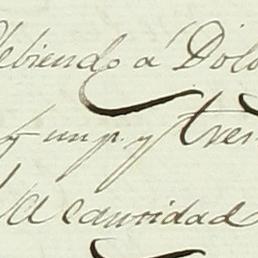 debiendo á Dolo
un p. y tres
la cantidad